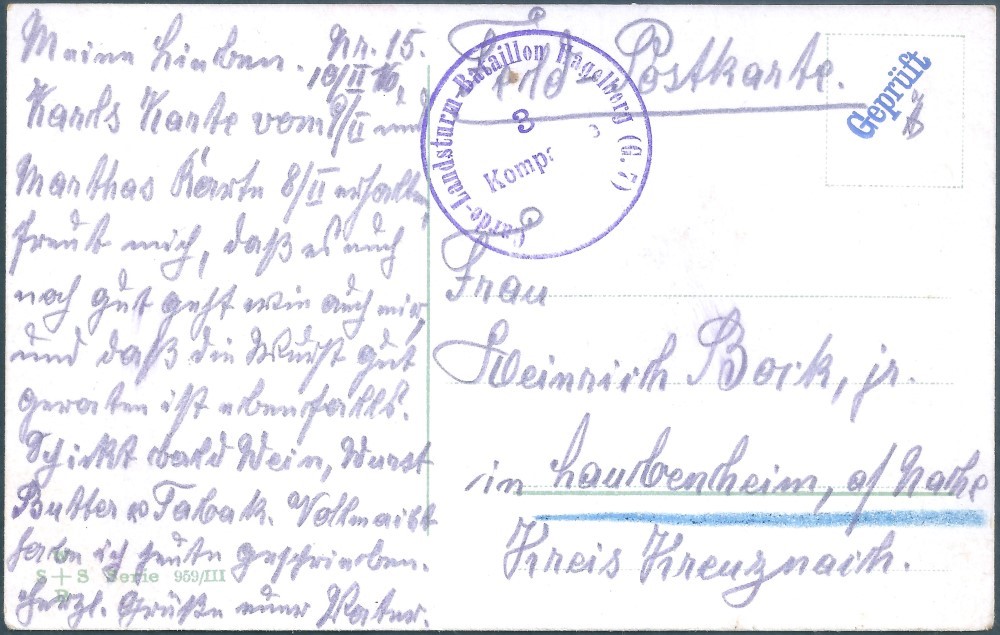 Meine Lieben. Nr. 15.
10/II 16.
Karls Karte vom 9/II und
Marthas Karte 8/II erhalten
freut mich, daß es euch
noch gut geht wie auch mir,
und daß die Wurst gut
geraten ist ebenfalls.
Schickt bald Wein, Wurst
Butter u Tabak.
habe ich heute geschrieben.
Herzl. Grüße euer Vater.
S + S Serie 959/III
Feld-Postkarte.
Garde-Landsturm-Bataillon Hagelberg (G. 7)
3
Komp
Geprüft
Frau
Heinrich Bock, jr.
in Laubenheim, a/ Nahe
Kreis Kreuznach.